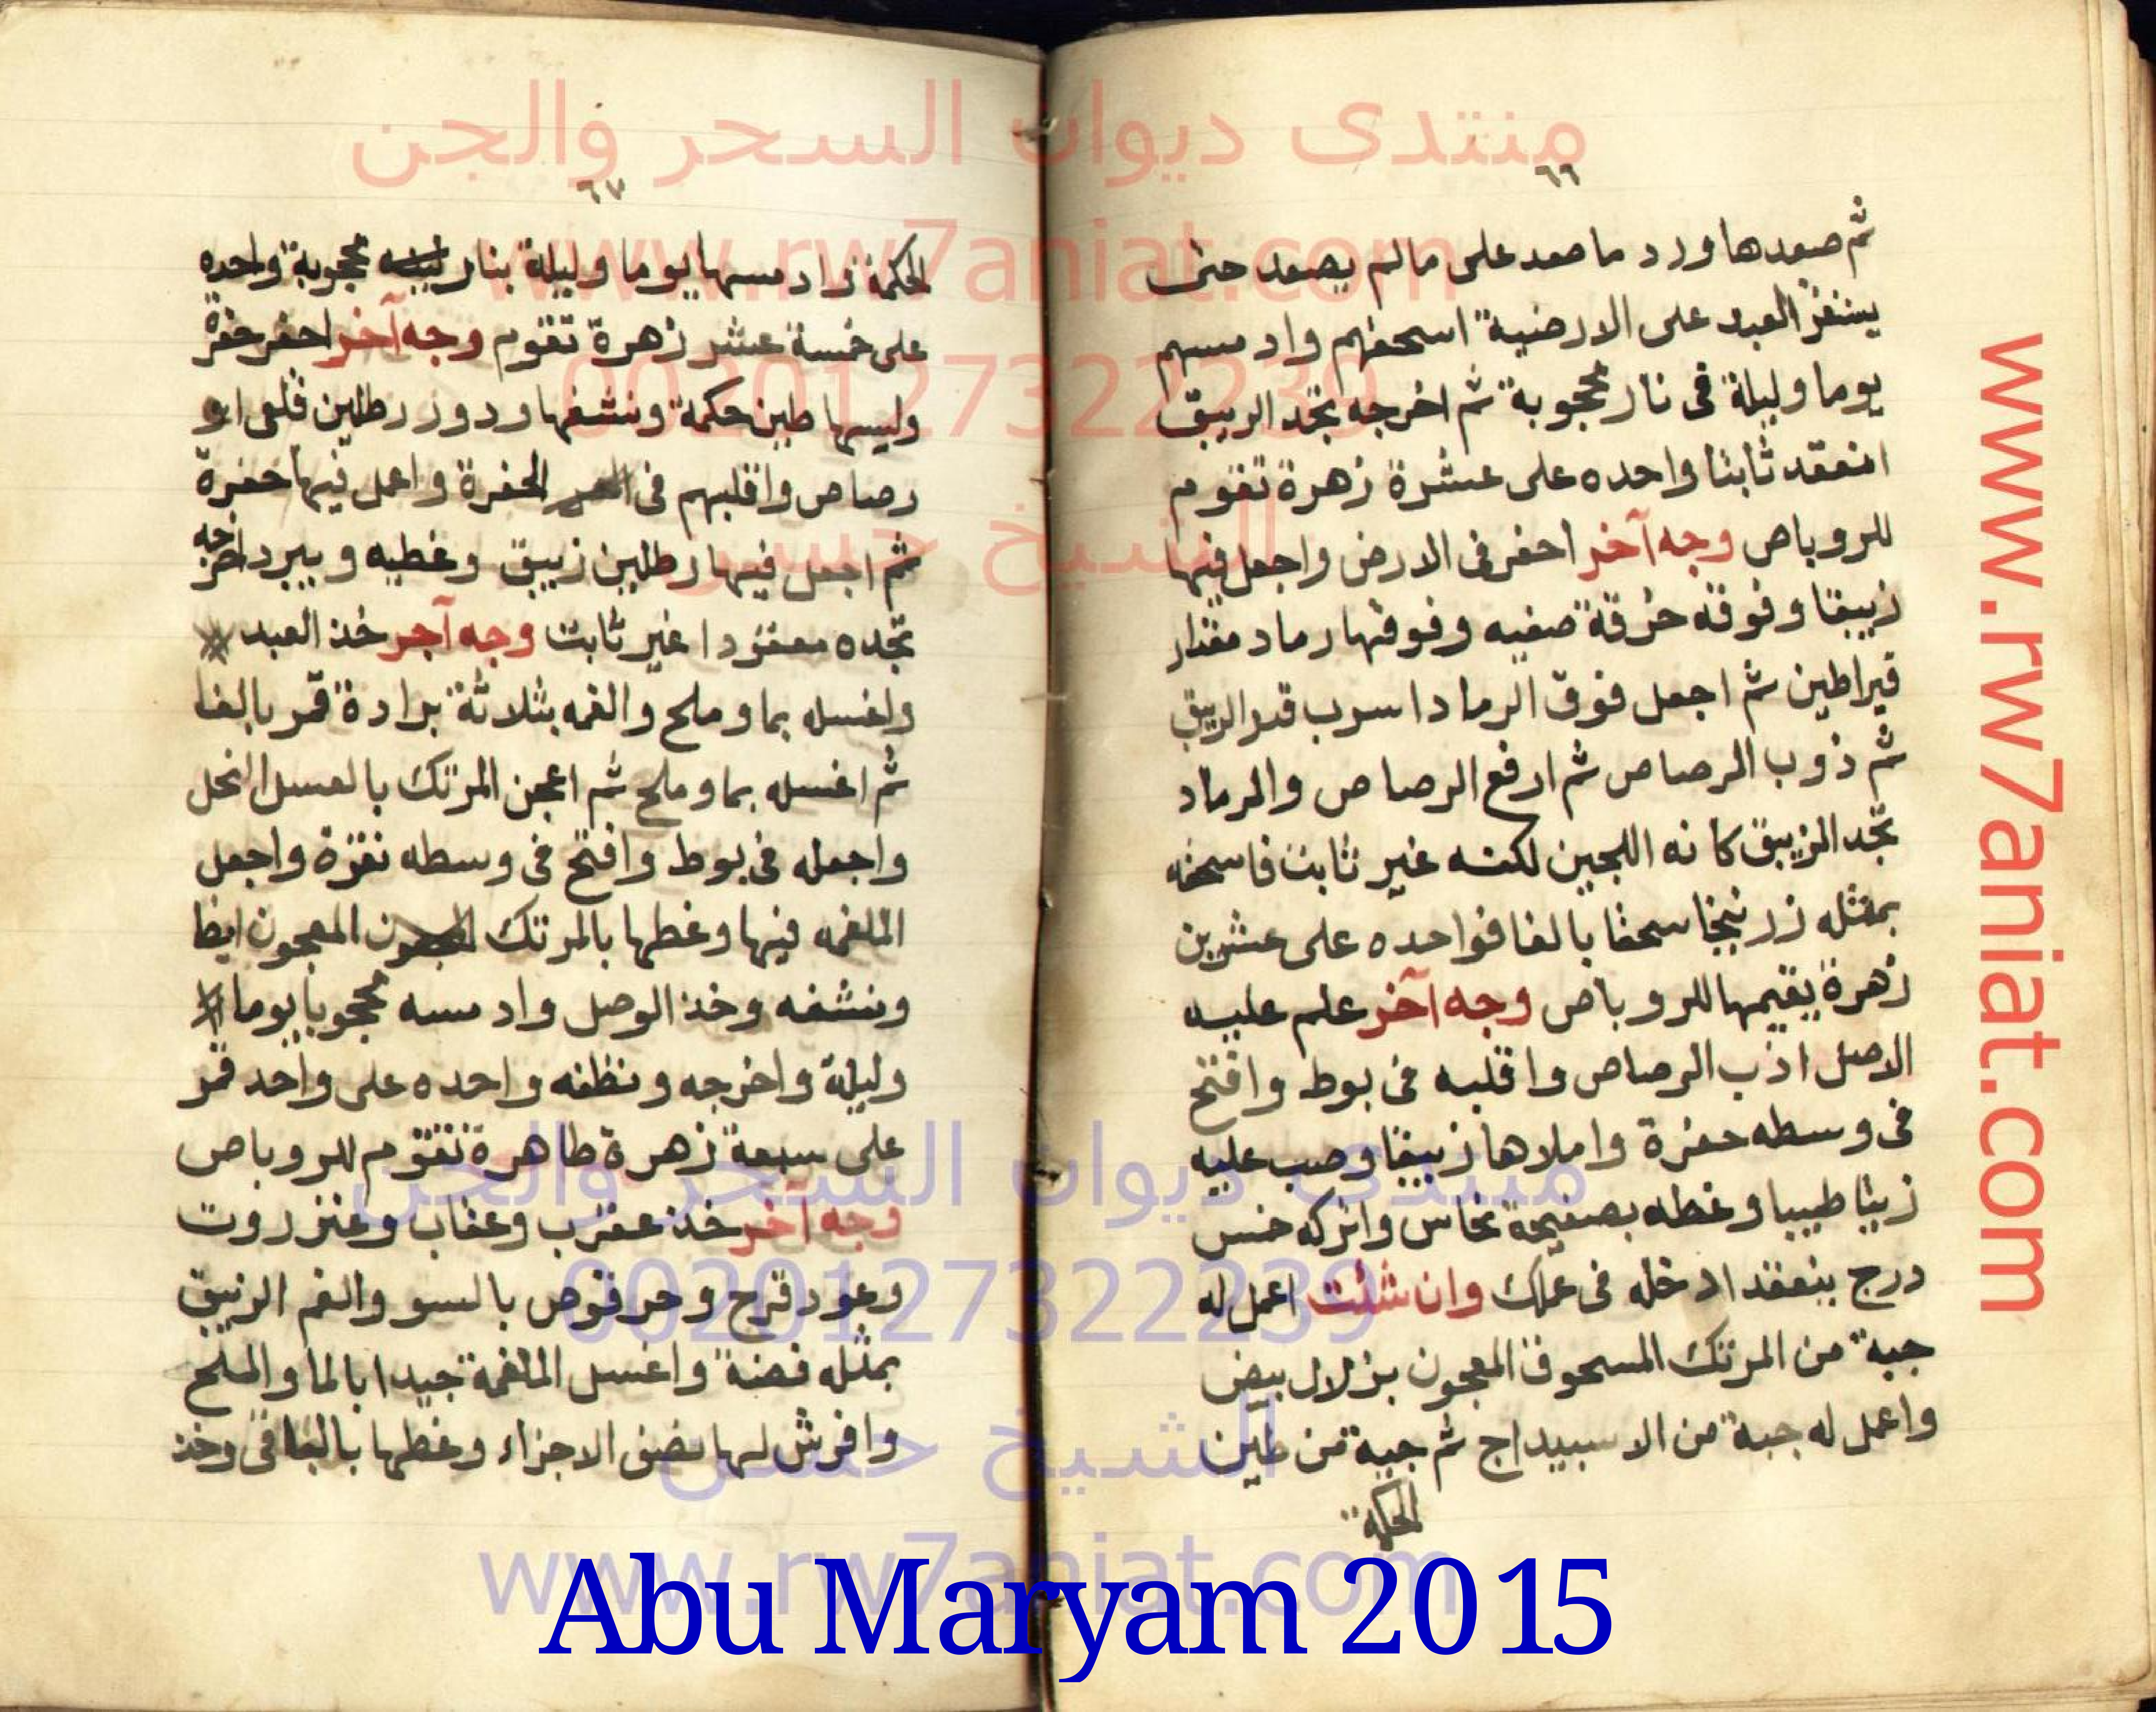 ٦٦
ثم صعدها ورد ما صعد على مالم يصعد حتى
يستقر العبد على الارضية اسحقهم وادمسهم
يوما وليلة في نار محجوبة ثم اخرجه تجد الزيبق
انعقد ثابتا واحده على عشرة زهرة تقوم
للروباص وجه آخر احفر في الارض واجعل فيها
زيبقا وفوقه خرقة صفيه وفوقها رماد مقدار
قيراطين ثم اجعل فوق الرماد اسرب قدر الزيبق
ثم ذوب الرصاص ثم ارفع الرصاص والرماد
تجد الزيبق كانه اللجين لكنه غير ثابت فاسحقه
بمثله زرنيخا سحقا بالغا فواحده على عشرين
زهرة يقيمها للروباص وجه آخر علم عليه
الاصل اذب الرصاص واقلبه في بوط وافتح
في وسطه حفرة واملاها زيبقا وصب عليه
زيتا طيبا وغطه بصفيحة نحاس واتركه خمس
درج ينعقد ادخله في عملك وان شئت اعمل له
جبة من المرتك المسحوق المعجون بزلال بيض
واعمل له جبة من الاسبيداج ثم جبة من طين
الحكمة
٦٧
الحكمة وادمسها يوما وليلة بنار محجوبة واحده
على خمسة عشر زهرة تقوم وجه آخر احفر حفرة
وليسها طين حكمة ونشفها ودور رطلين قلعي او
رصاص واقلبهم في الحفرة واعمل فيها حفرة
ثم اجعل فيها رطلين زيبق وغطيه ويبرد اخرجه
تجده معقودا غير ثابت وجه آخر خذ العبد
واغسله بماوملح والغمه بثلاثة برادة قمر بالغا
ثم اغسله بماوملح ثم اعجن المرتك بالعسل النحل
واجعله في بوط وافتح في وسطه نقرة واجعل
الملغمه فيها وغطها بالمرتك المعجون ايظا
ونشفه وخذ الوصل وادمسه محجوبا يوما
وليلة واخرجه ونظفه واحده على واحد قمر
على سبعة زهرة طاهرة تقوم للروباص
وجه آخر خذ عقرب وعقاب وعنزروت
وعود قرح وحرقوص بالسو والغم الزيبق
بمثله فضة واغسل الملغمة جيدا بالما والملح
وافرش لها نصف الاجزاء وغطها بالباقي وخذ
منتدى ديوان السحر والجن
www.rw7aniat.com
0020127322239
الشيخ حسن
منتدى ديوان السحر والجن
0020127322239
الشيخ حسن
www.rw7aniat.com
www.rw7aniat.com
Abu Maryam 2015